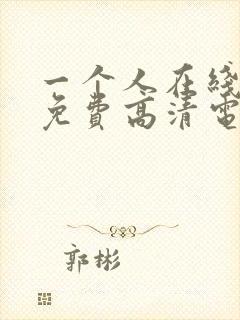 一个人在线
免费高清电
郭彬